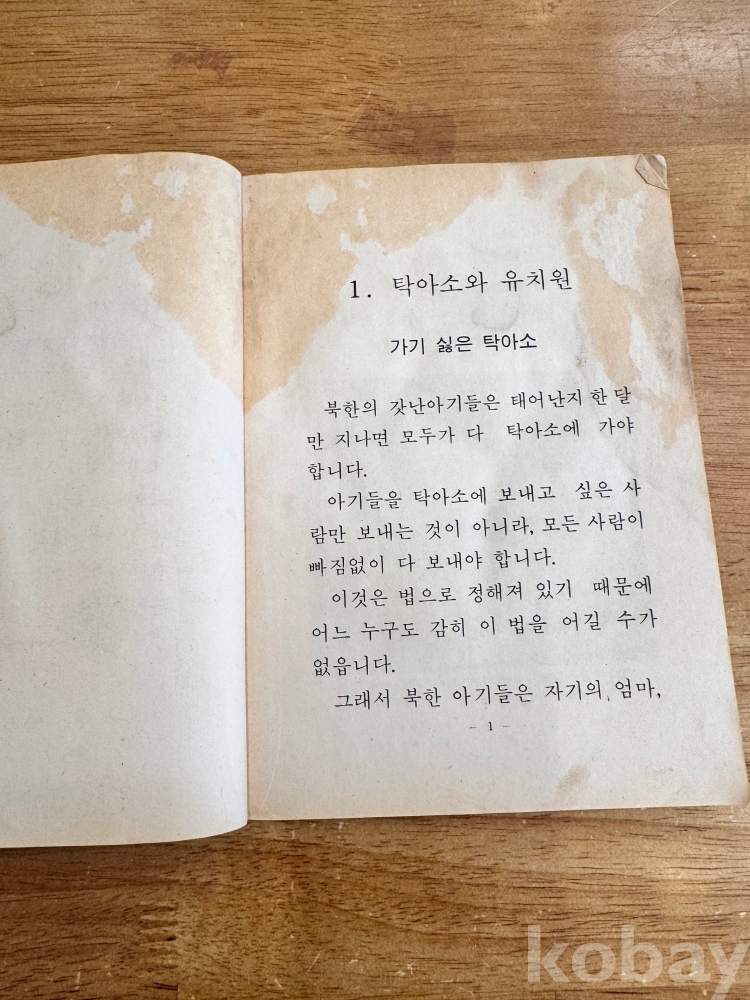 1. 탁아소와 유치원
가기 싫은 탁아소
북한의 갓난아기들은 태어난지 한 달
만 지나면 모두가 다 탁아소에 가야
합니다.
아기들을 탁아소에 보내고 싶은 사
람만 보내는 것이 아니라, 모든 사람이
빠짐없이 다 보내야 합니다.
이것은 법으로 정해져 있기 때문에
어느 누구도 감히 이 법을 어길 수가
없읍니다.
그래서 북한 아기들은 자기의 엄마,
- 1 -
kobay